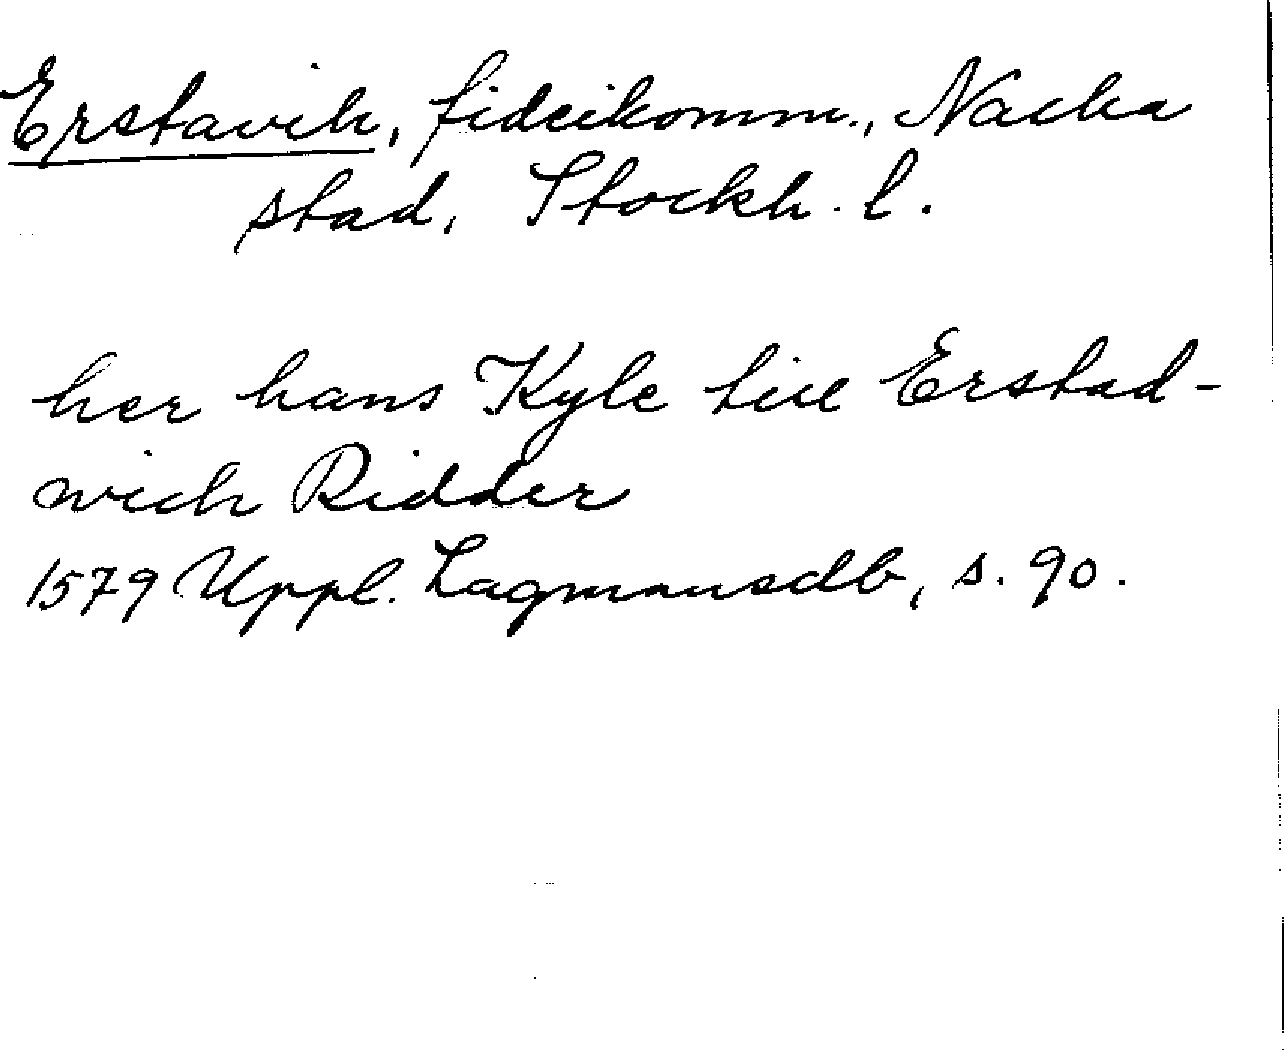 Erstavik, fideikomm., Nacka
stad, Stockh. l.
her hans Kyle till Erstad-
wich Ridder
1579 Uppl. Lagmansdb, s. 90.